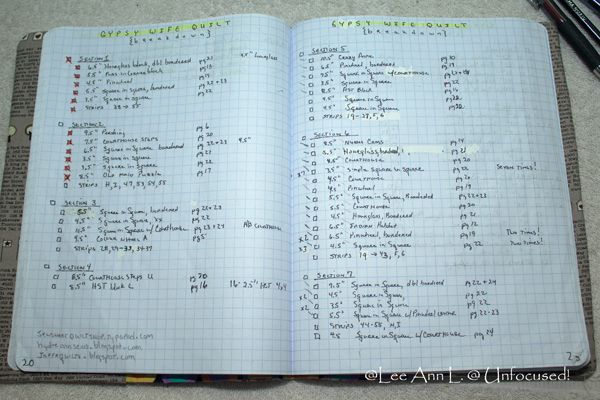 GYPSY WIFE QUILT
{breakdown}
SECTION 1
6.5" Hourglass block, dbl bordered pg 22 4.5" hourglass
5.5" block pg 19
4.5" Pinwheel pg 19
5.5" Square in Square, bordered pg 22+23
3.5" Square in Square pg 22
STRIPS 38 → 55
SECTION 2
9.5" pg 6
7.5" COURTHOUSE STEPS pg 20
6.5" Square in Square bordered pg 22+23 4.5"
3.5" Square in Square pg 22
4.5" Square in Square pg 22
8.5" Old Maid Puzzle pg 17
STRIPS H, I, 47, 53, 54, 55
SECTION 3
8.5" Square in Square, bordered pg 22+23
4.5" Square in Square, pg 22
10.5" Square in Square w/ Courthouse pg 23+24 A/B COURTHOUSE
4.5" A pg 5
STRIPS 28, 29-33, 34-37
SECTION 4
8.5" COURTHOUSE Steps U pg 20
8.5" HST block L pg 16 16 2.5" HST
20
GYPSY WIFE QUILT
{breakdown}
SECTION 5
10.5" Crazy Anne pg 10
6.5" Pinwheel, bordered pg 19
9.5" Square in Square w/ COURTHOUSE
3.5" Square in Square pg 22
8.5" HST Block pg 16
4.5" Square in Square pg 22
4.5" Square in Square pg 22
STRIPS 19-38, F, G
SECTION 6
8.5" pg 14
5.5" Hourglass, bordered
8.5" COURTHOUSE pg 20
3.5" Simple Square in Square pg 22 SEVEN TIMES!
4.5" COURTHOUSE pg 20
4.5" Pinwheel pg 19
5.5" Square in Square, Bordered pg 22+23
5.5" COURTHOUSE pg 20
4.5" Hourglass, Bordered pg 21
6.5" INDIAN Hatchet pg 12
x2 6.5" Pinwheel, bordered pg 19 Two Times!
x2 4.5" Square in Square pg 22 Two Times!
STRIPS 19 → 43, F, G
SECTION 7
9.5" Square in Square, dbl bordered pg 22+24
x2 4.5" Square in Square, pg 22
x2 3.5" Square in Square pg 22
5.5" Square in Square w/ Pinwheel center pg 22-23
STRIPS 44-55, H, I
4.5 Square in Square w/ COURTHOUSE pg 24
@Lee Ann L. @ Unfocused!